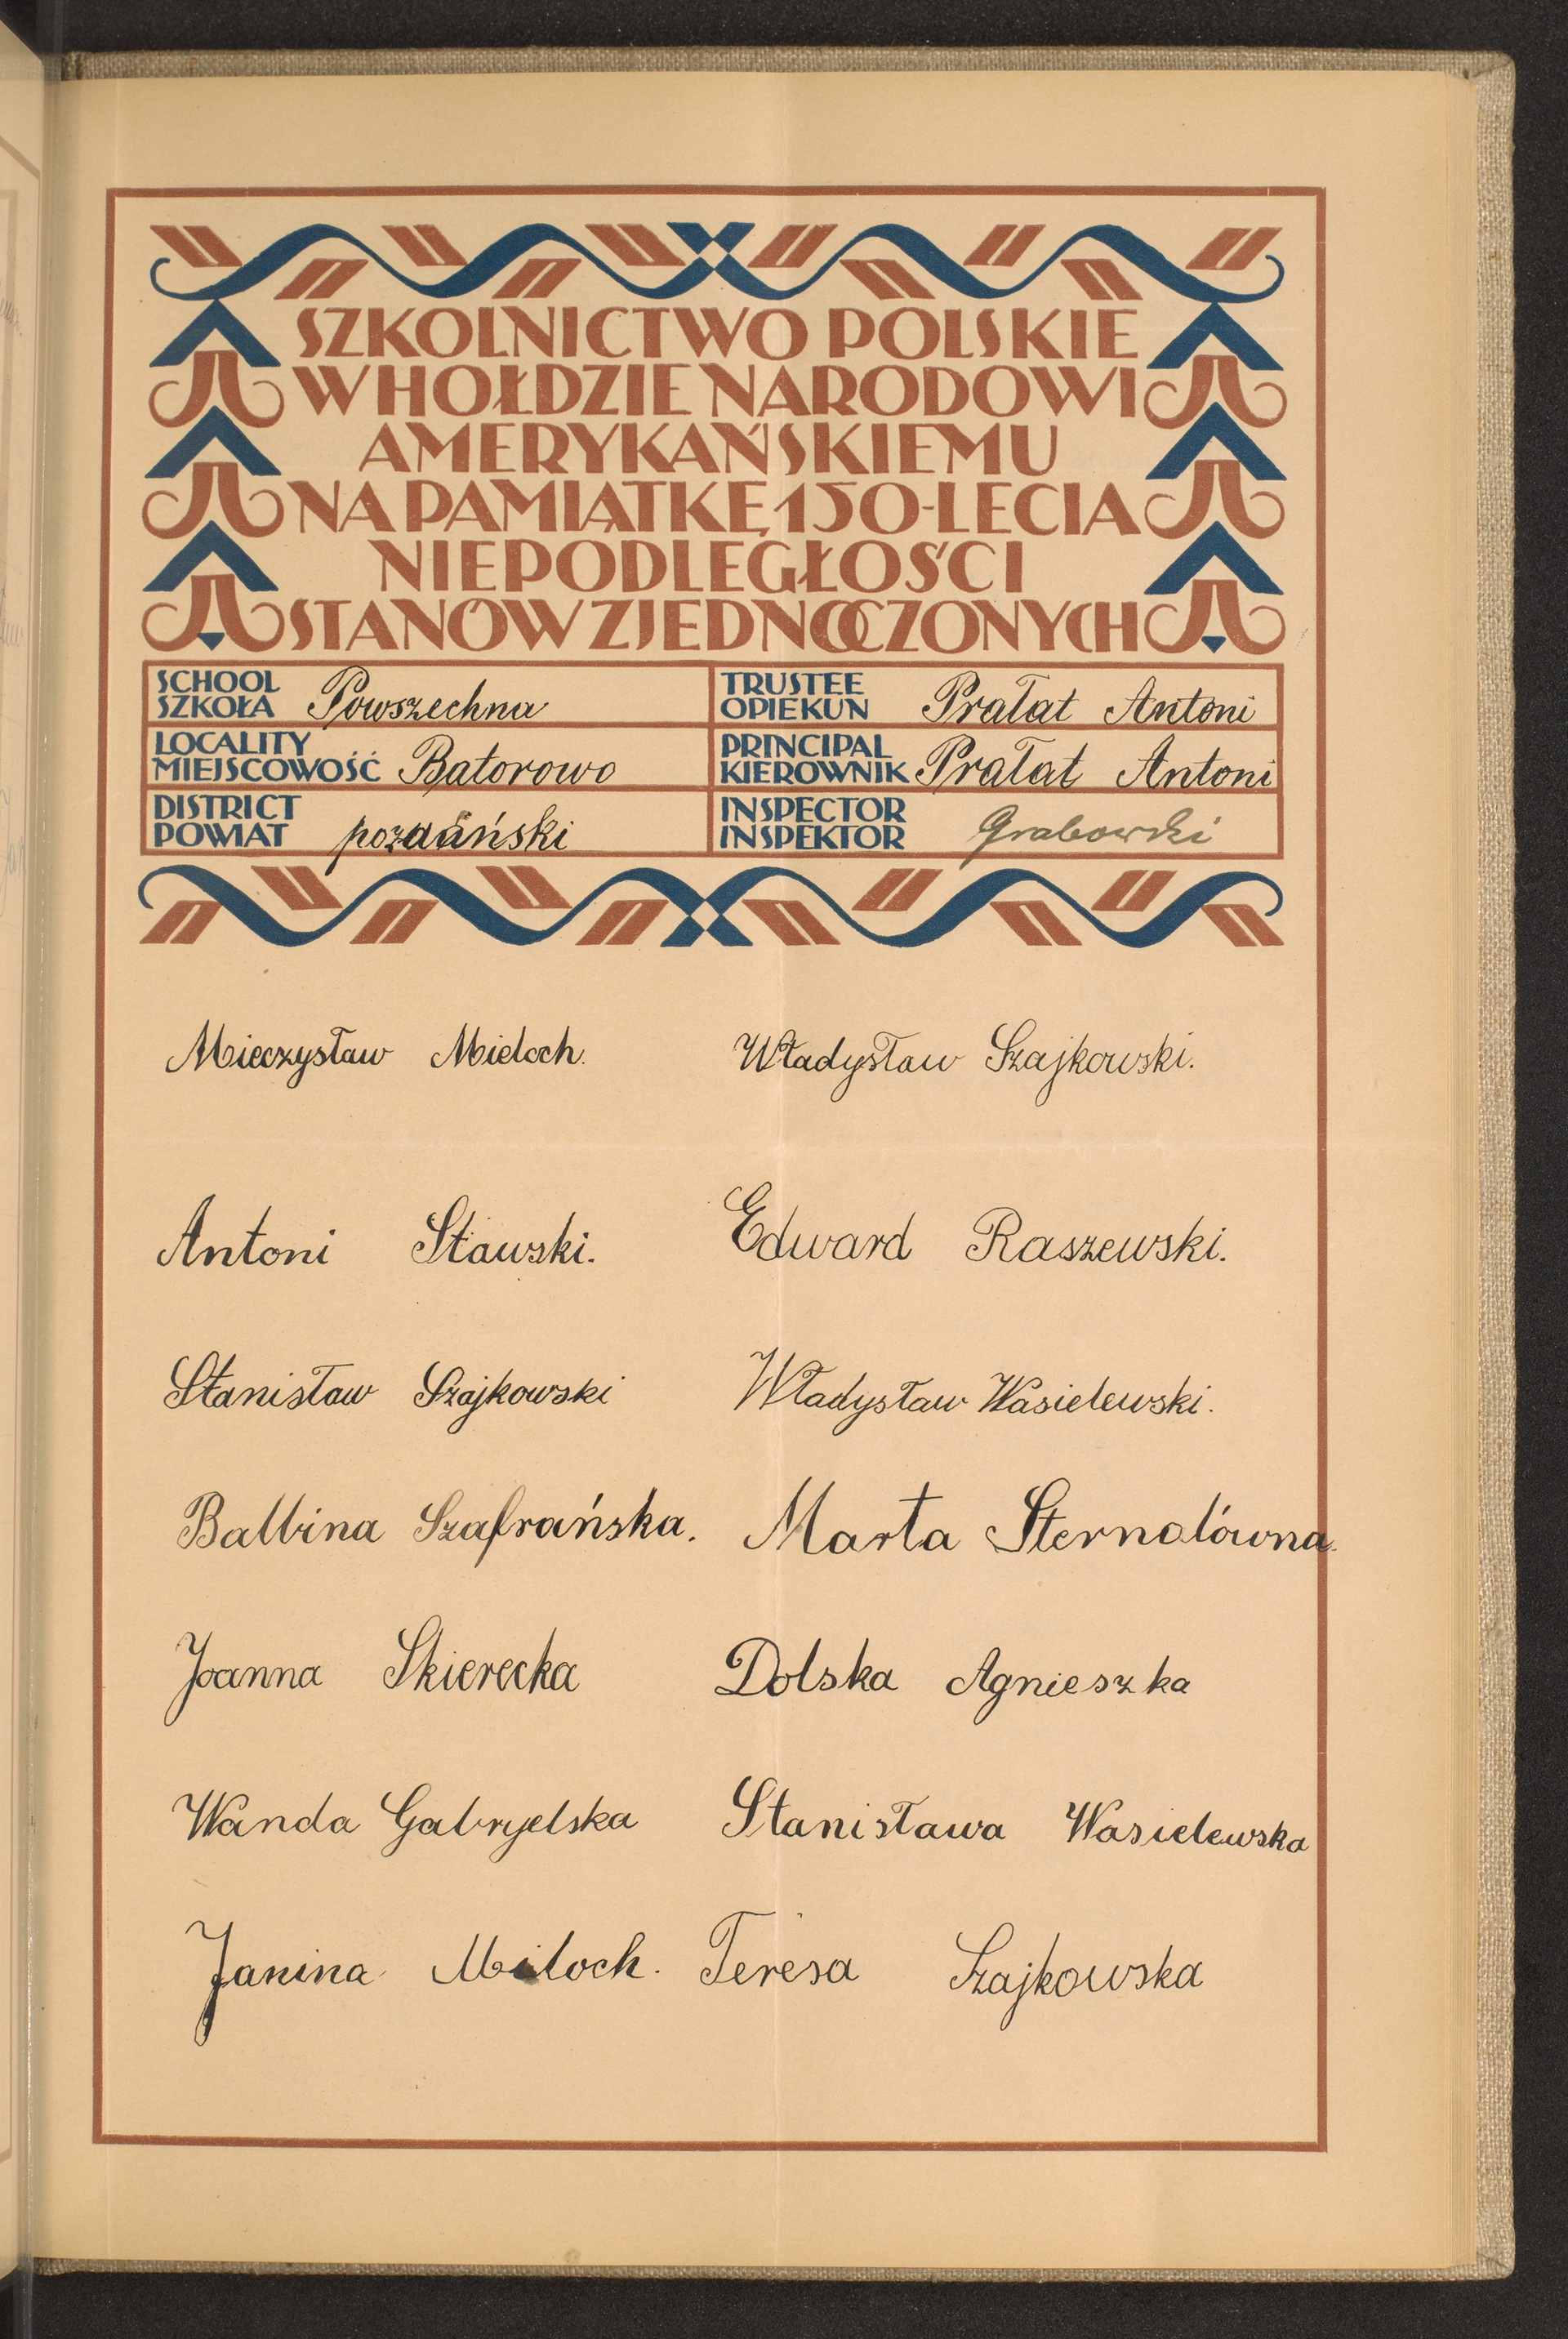 SZKOLNICTWO POLSKIE
W HOŁDZIE NARODOWI
AMERYKAŃSKIEMU
NA PAMIĄTKĘ 150-LECIA
NIEPODLEGŁOŚCI
STANÓW ZJEDNOCZONYCH
SCHOOL
SZKOŁA Powszechna
TRUSTEE
OPIEKUN Prałat Antoni
LOCALITY
MIEJSCOWOŚĆ Batorowo
PRINCIPAL
KIEROWNIK Prałat Antoni
DISTRICT
POWIAT
INSPECTOR
INSPEKTOR Grabowski
Mieczysław Mieloch. Władysław Szajkowski.
Antoni Stawski. Edward Raszewski.
Stanisław Szajkowski Władysław Wasielewski.
Balbina Szafrańska. Marta Sternalówna.
Joanna Skierecka Dolska Agnieszka
Wanda Gabryelska Stanisława Wasielewska
Janina Mieloch. Teresa Szajkowska